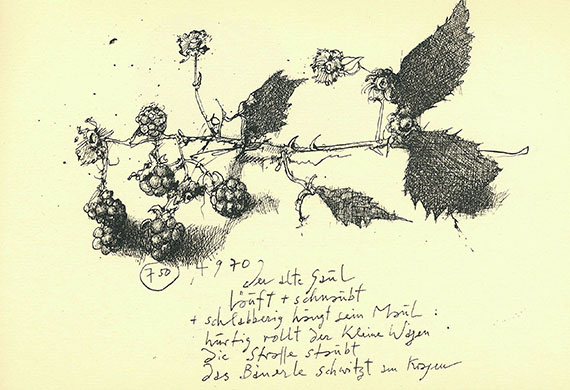 750 4970
Der alte Gaul
läuft + schnaubt
+ schlabberig hängt sein Maul :
hurtig rollt der Kleine Wagen
die Straße staubt
das Bäuerle schwitzt am Kragen